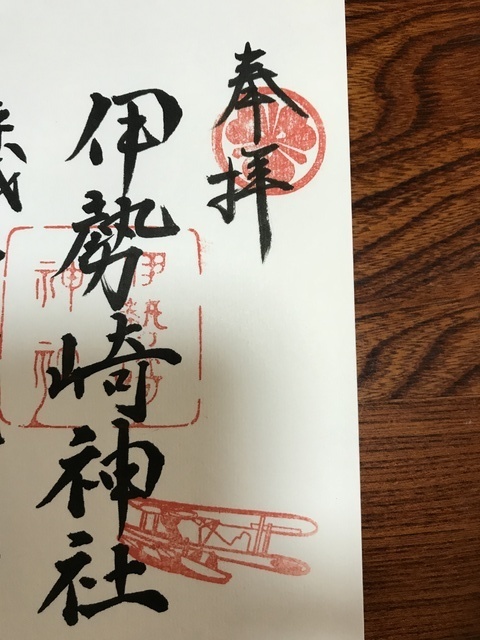 奉拝
伊勢崎神社